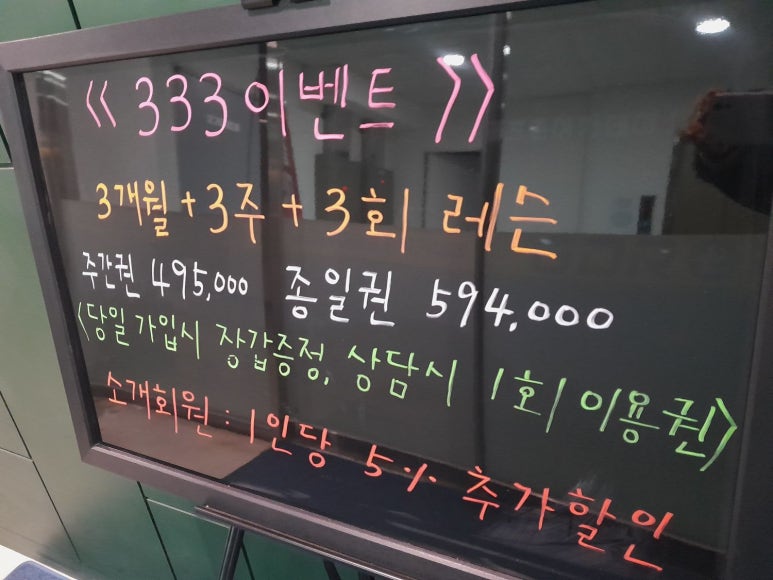 《 333이벤트 》
3개월 + 3주 + 3회 레슨
주간권 495,000 종일권 594,000
〈당일 가입시 장갑증정, 상담시 1회 이용권〉
소개회원 : 1인당 5% 추가할인